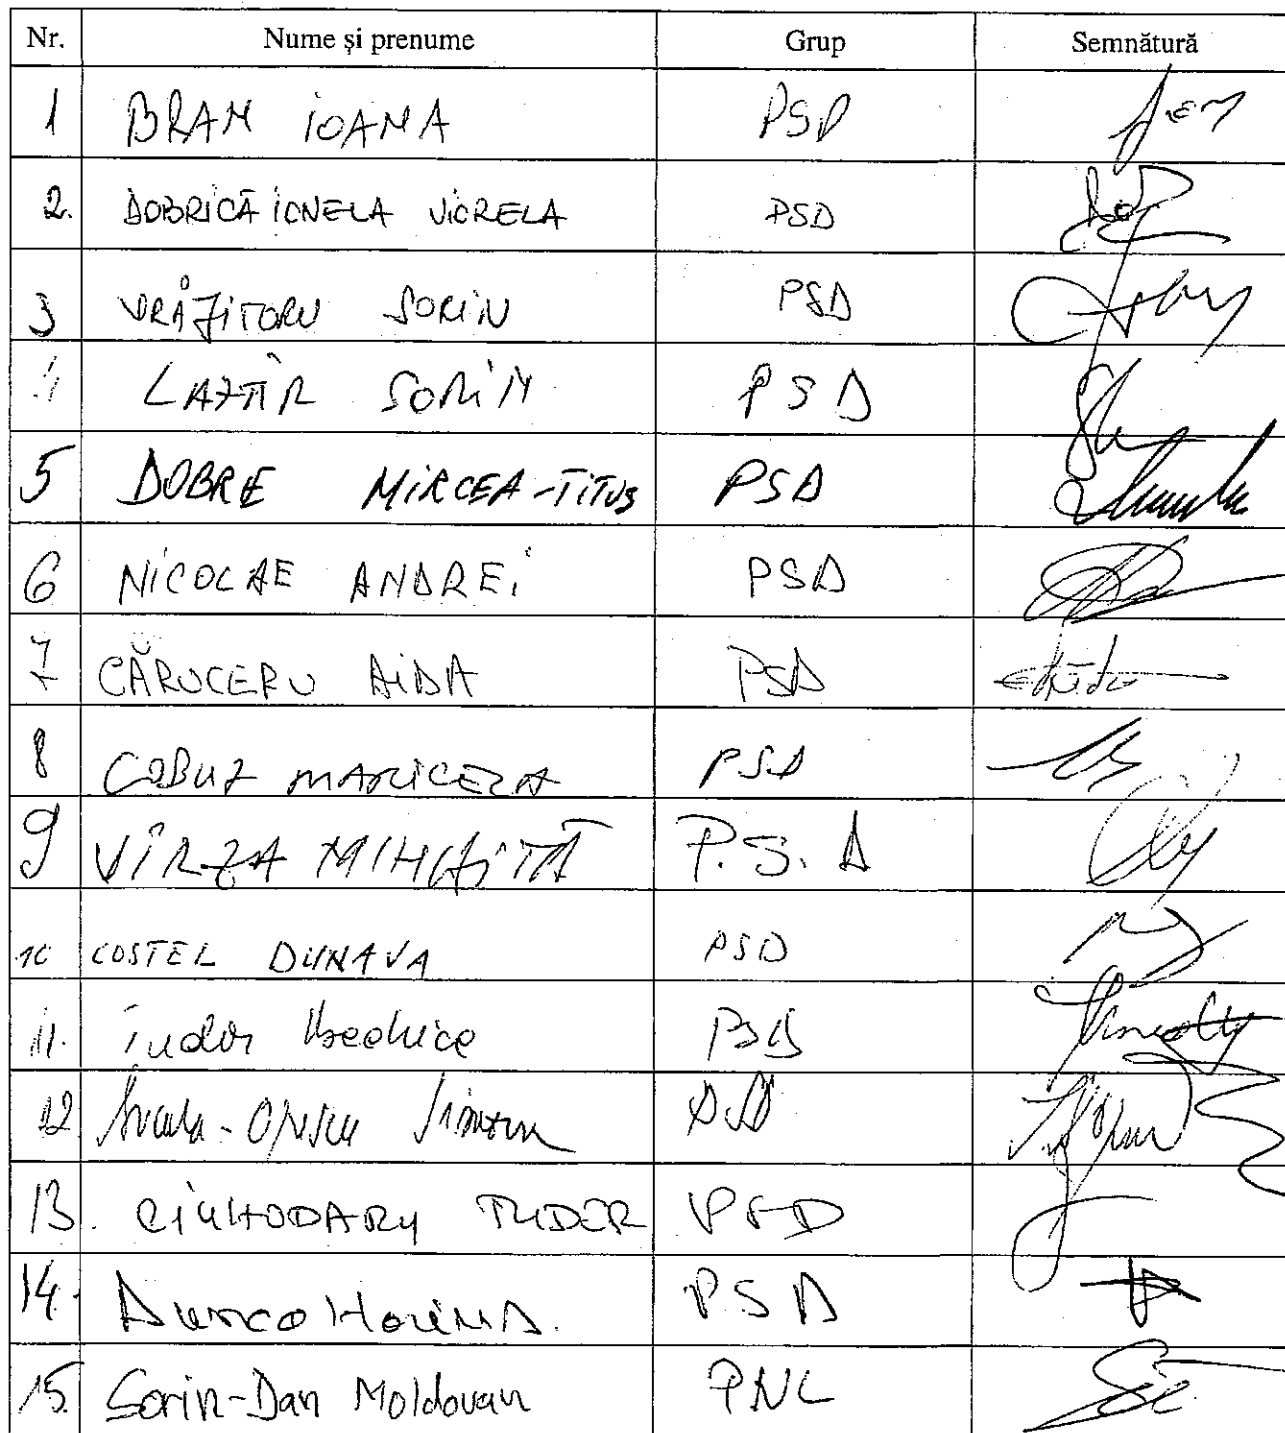 Nr. Nume și prenume Grup Semnătură
1 BRAN IOANA PSD
2. DOBRICĂ IONELA VIORELA PSD
3 VRĂJITORU SORIN PSD
LAZĂR SORIN PSD
5 DOBRE MIRCEA-TITUS PSD
6 NICOLAE ANDREI PSD
7 CĂRUCERU AIDA PSD
8 COBUZ MARICELA PSD
9 VÎRZA MIHĂIȚĂ P.S.D
10 COSTEL DUNAVA PSD
11. Tudor PSD
12 PSD
13. CIUHODARU TUDOR PSD
14. PSD
15. Sorin-Dan Moldovan PNL